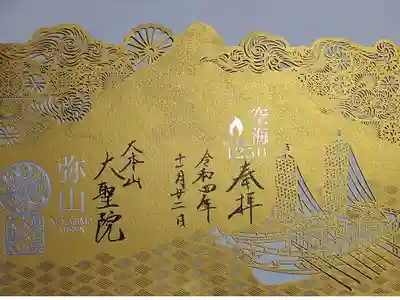 空海
1250
奉拝
令和四年
十一月廿二日
大本山
大聖院
弥山
MIYAJIMA
MISEN